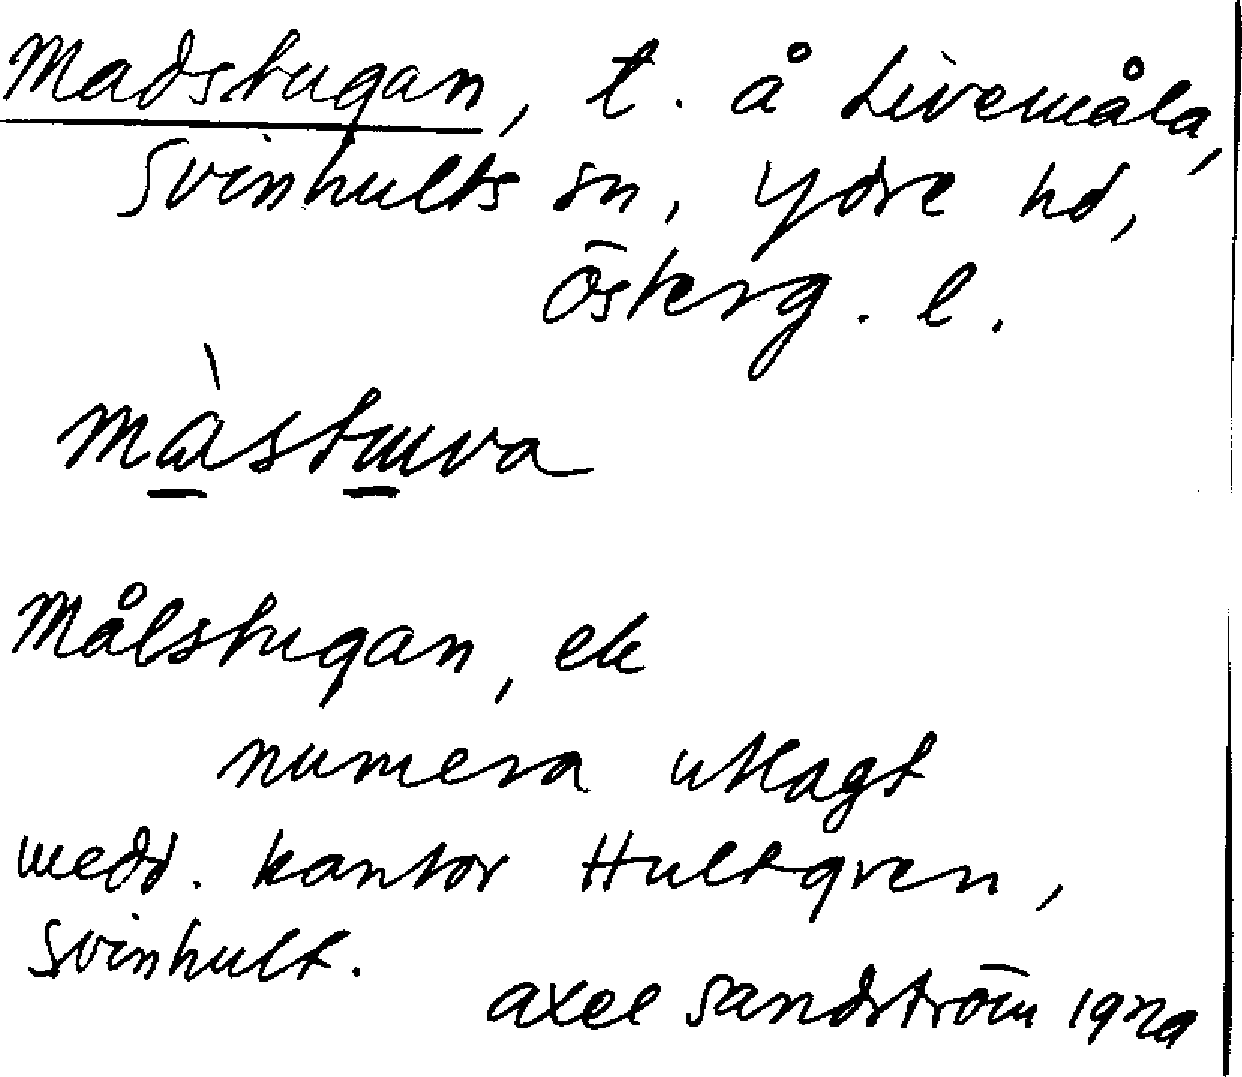 Madstugan, t. å Livemåla,
Svinhults sn, Ydre hd,
Österg. l.
màstuva
Målstugan, ek
numera utlagt
medd. kantor Hultgren,
Svinhult.
Axel Sandström 1929